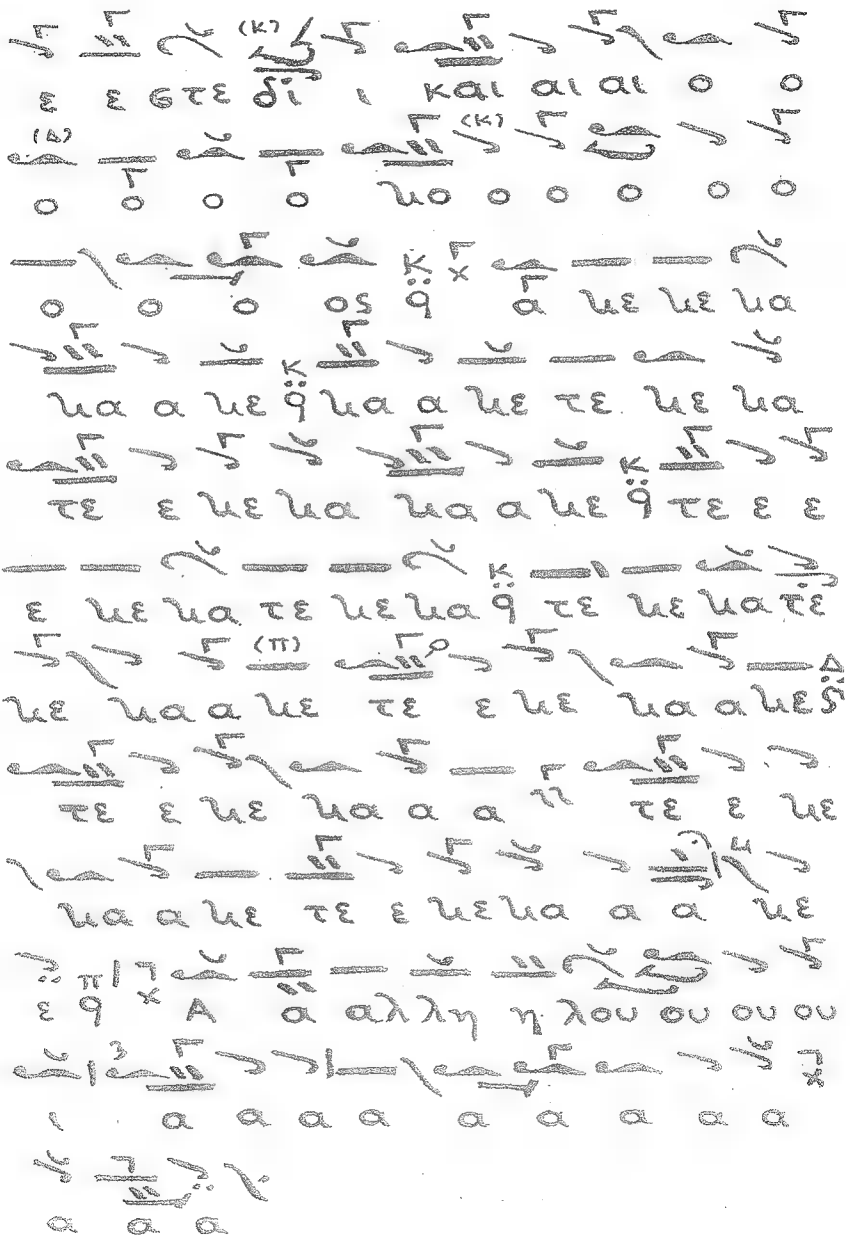 (Κ)
ε ε στε δι ι και αι αι ο ο
(Δ) (Κ)
ο ο ο ο νο ο ο ο ο ο
ο ο ο ος α νε νε να
να α νε να α νε τε νε να
τε ε νε να να α νε τε ε ε
ε νε να τε νε να τε νε να τε
(Π)
νε να α νε τε ε νε να α νε
τε ε νε να α α τε ε νε
να α νε τε ε νε να α α νε
ε Α α αλλη η λου ου ου ου
ι α α α α α α α α α
α α α